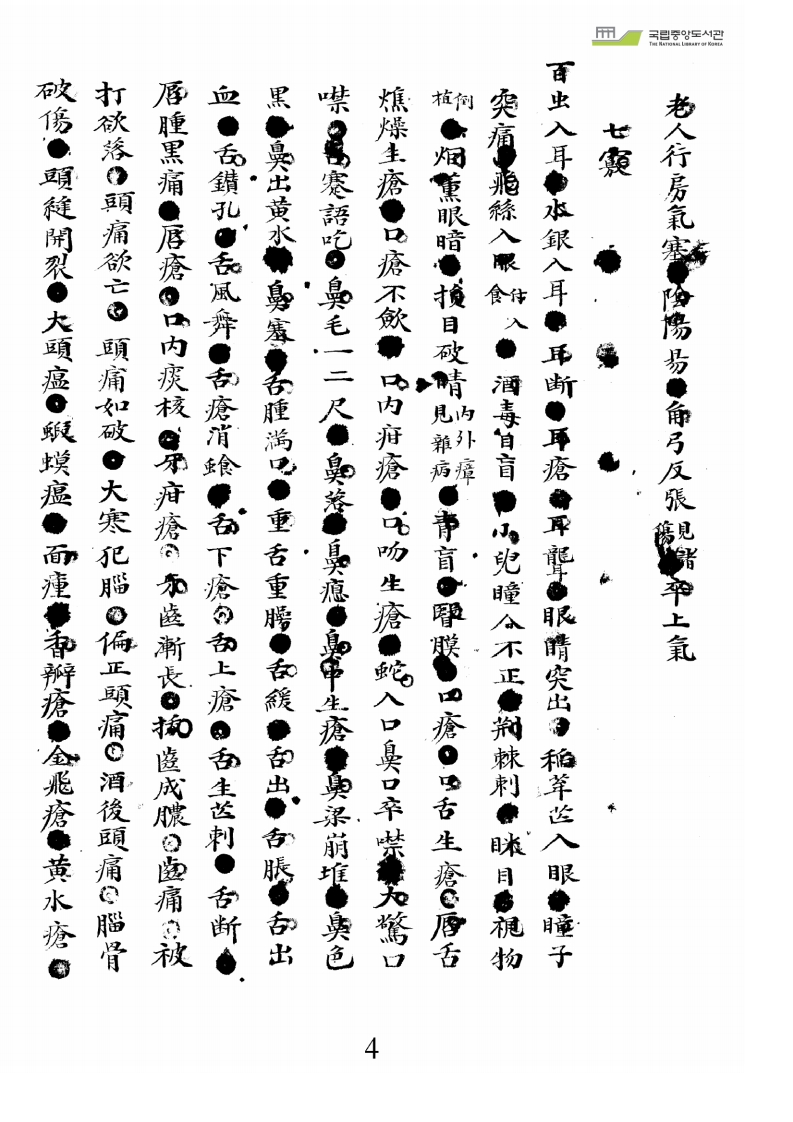 국립중앙도서관
THE NATIONAL LIBRARY OF KOREA
老人行房氣塞●陰陽易●角弓反張見諸傷●卒上氣
七竅
百虫入耳●水銀入耳●耳断●耳瘡●耳聾●眼睛突出●稲芒入眼●瞳子
突痛●飛絲入眼食●酒毒目盲●小兒瞳人不正●荆棘刺●眯目●視物
倒植●烟薫眼暗●損目破睛内外瘴見雜病●青盲●瞖膜●口瘡●口舌生瘡●唇舌
燋燥生瘡●口瘡不歛●口内疳瘡●口吻生瘡●蛇入口鼻口卒噤●大驚口
噤●舌蹇語吃●鼻毛一二尺●鼻落●鼻瘜●鼻中生瘡●鼻梁崩堆●鼻色
黒●鼻出黄水●鼻塞●舌腫満口●重舌重腭●舌緩●舌出●舌脹●舌出
血●舌鑚孔●舌風舞●舌瘡消蝕●舌下瘡●舌上瘡●舌生芒刺●舌断●
唇腫黒痛●唇瘡●口内痰核●牙疳瘡●牙齒漸長●揷齒成膿●齒痛●被
打欲落●頭痛欲亡●頭痛如破●大寒犯腦●偏正頭痛●酒後頭痛●腦骨
破傷●頭縫開裂●大頭瘟●蝦蟆瘟●面瘇●香瓣瘡●金飛瘡●黄水瘡●
4